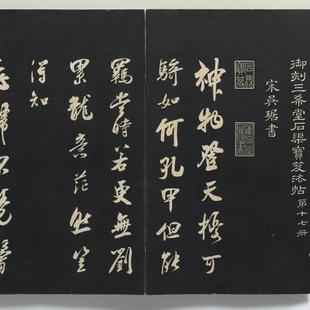 御刻三希堂石渠寶笈法帖 第十七冊
宋吳琚書
神物登天擾可
騎如何孔甲但能
羈當時若更無劉
累龍意茫然豈
得知
歸不覺